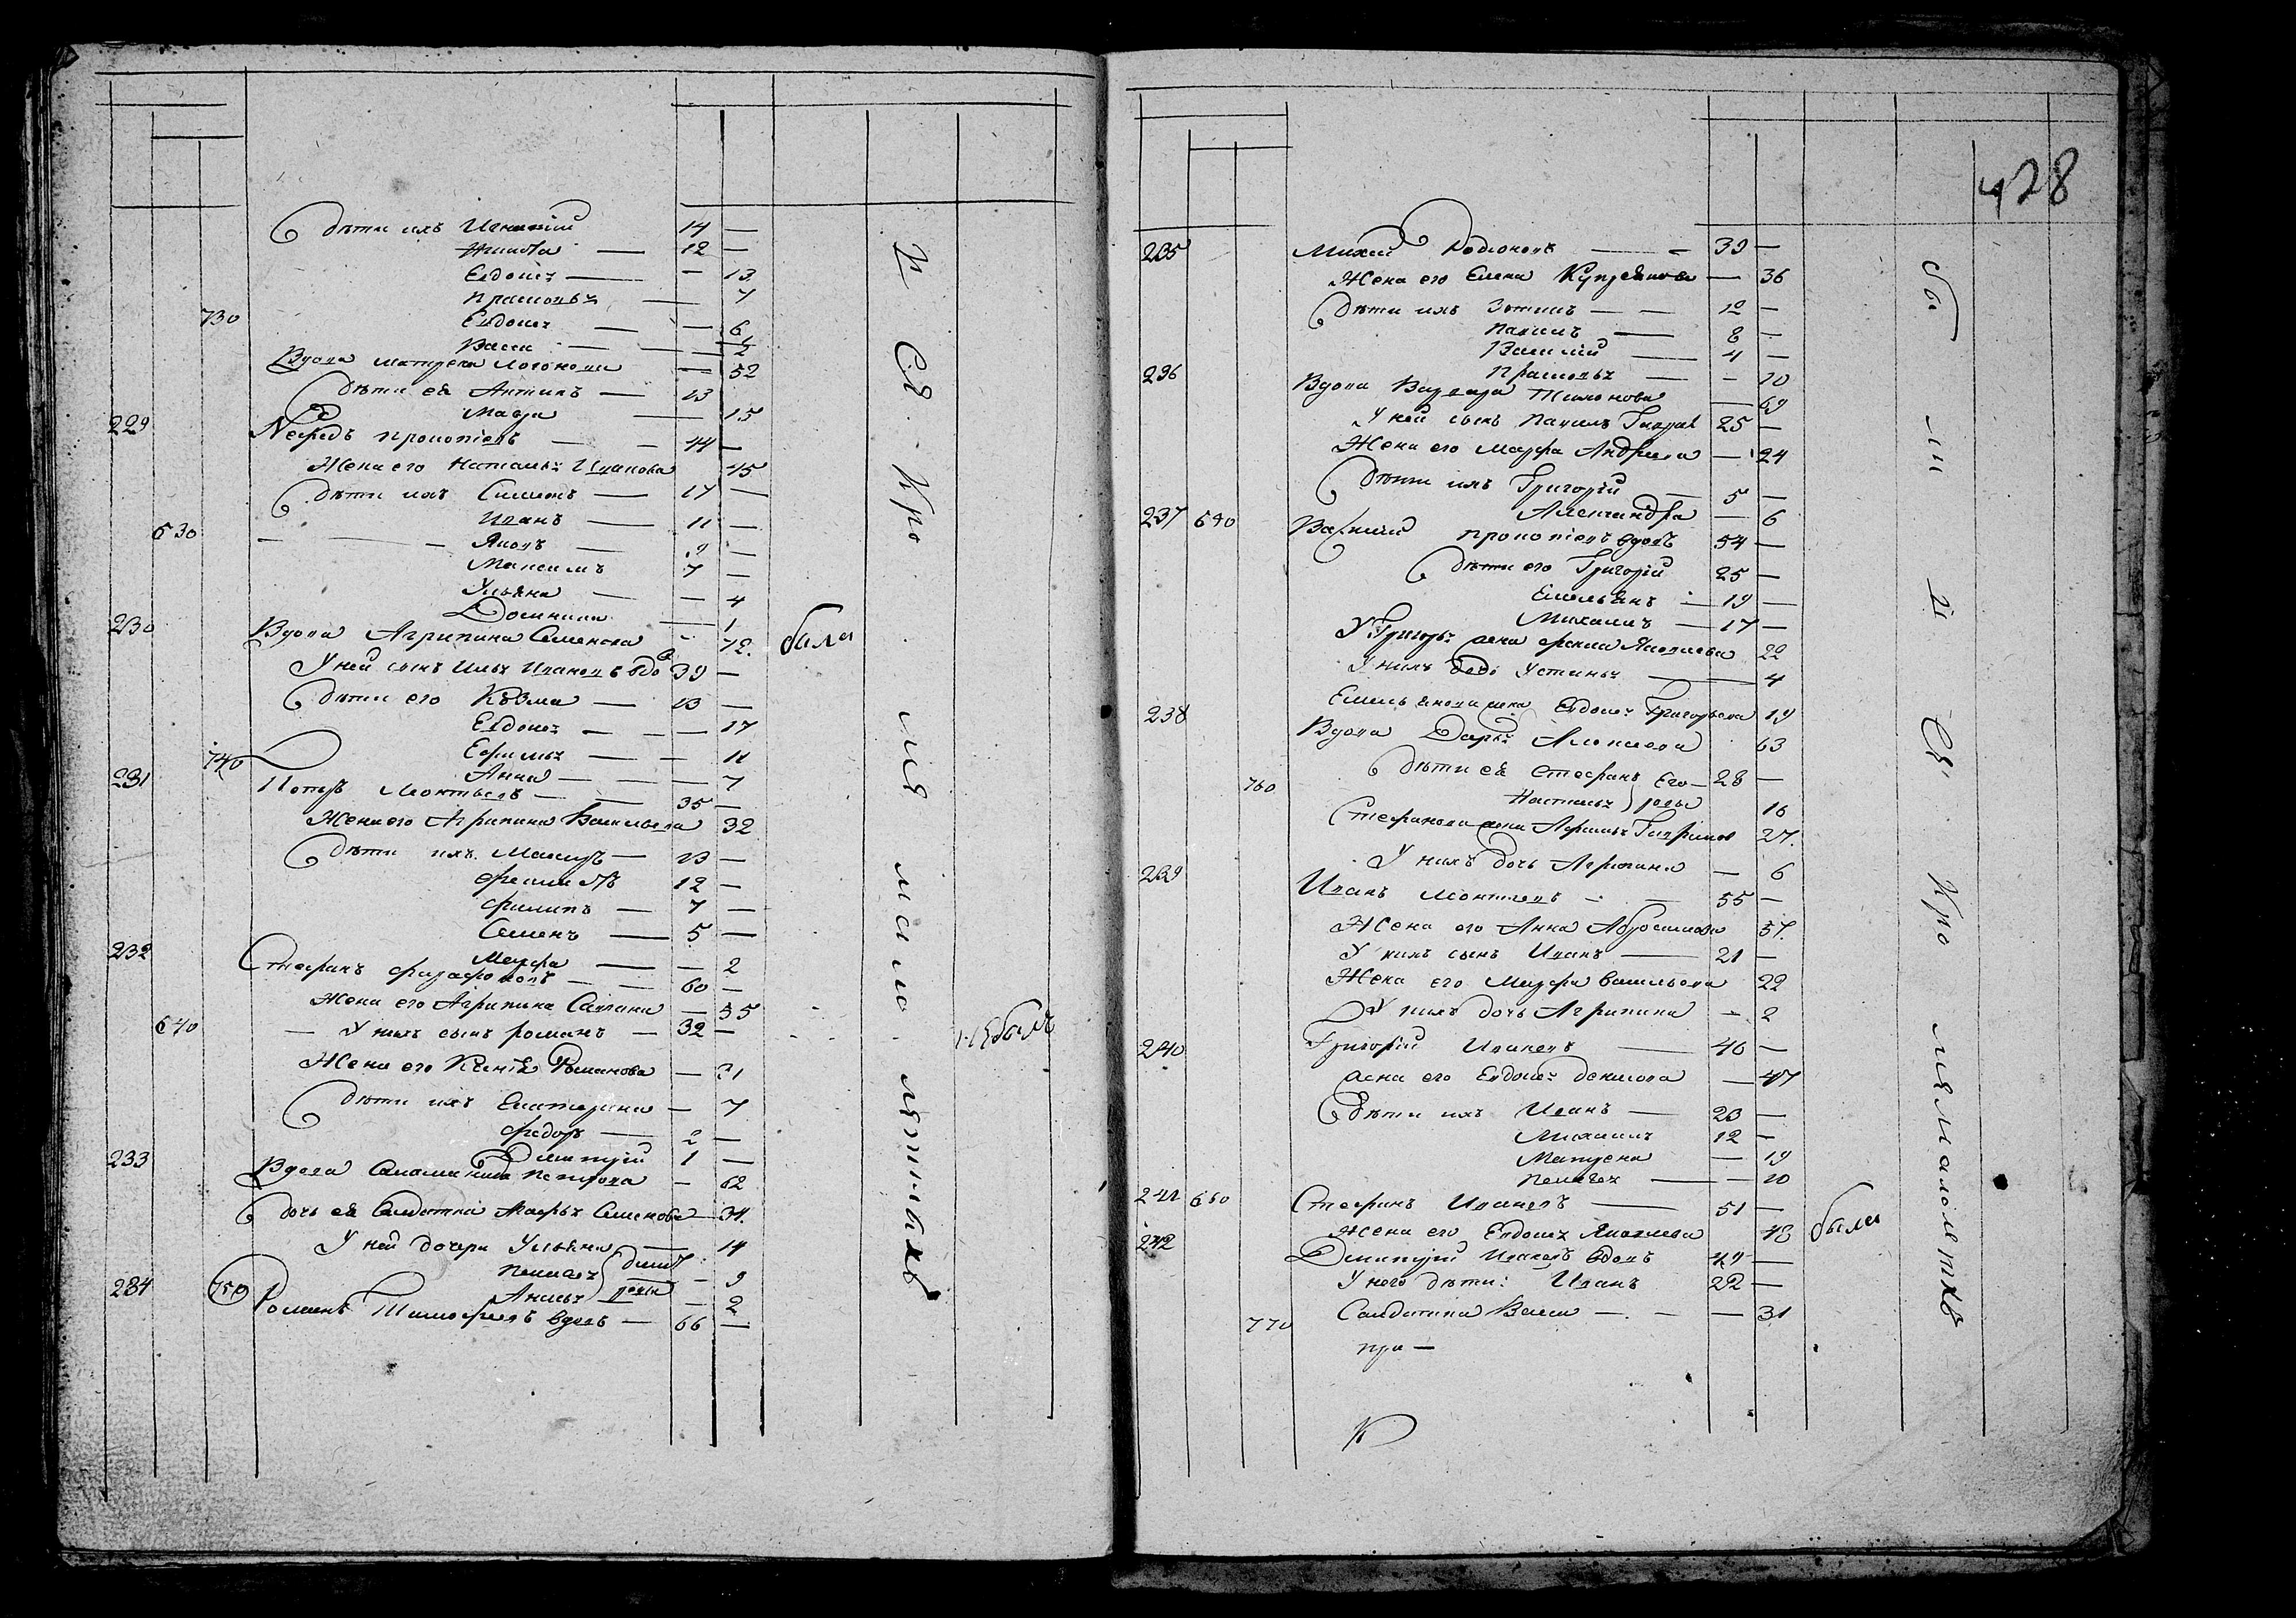 дѣти ихъ Игнатий 14 —
12 —
Евдокея — 13
Прасковья — 7
730 Евдокея — 6
Васса — 2
Вдова Матрена — 52
дѣти ея Антипъ — 13
Мавра — 15
229 Нефедъ Прокопіевъ — 44 —
Жена его Наталья Иванова 45
дѣти ихъ Симионъ — 17 —
Иванъ — 11 —
630 Яковъ — 9 —
Максимъ 7 —
Ульяна — 4
Домникия — 1
230 Вдова Агрипина Семенова — 72. были
У ней сынъ Илья Ивановъ вдо 39 —
дѣти его Кузма — 13 —
Евдокея — 17
Ефимья — 11
740 Анна — 7
231 Петръ Леонтьевъ — 35 —
Жена его Агрипина Васильева 32
дѣти ихъ 13 —
12 —
Филипъ — 7 —
Семенъ — 5 —
Марфа — 2
232 Стефанъ — 60 —
Жена его Агрипина — 55
640 — У нихъ сынъ Романъ — 32 — небылъ
Жена его Романова — 31
дѣти ихъ Екатерина — 7
Федоръ — 2 —
Димитрій 1 —
233 Вдова Петрова — 62
дочь ея Солдатка Марфа Семенова — 34.
У ней дочери Ульяна — 14
Пелагея — 9
Анисья — 2
234 750 Романъ Тимофеевъ вдовъ — 66 —
И ся кро мѣ мало лѣтныхъ
428
235 Михей Родионовъ — 39 —
Жена его Елена Купреянова — 36
дѣти ихъ Зотикъ — 12 —
Павилъ — 8 —
Василій — 4 —
Прасковья — 10
236 Вдова Варвара — 69
У ней сынъ Павилъ 25 —
Жена его Марфа Андреева — 24
дѣти ихъ Григорій — 5 —
Александра — 6
237 650 Василий Прокопіевъ вдовъ 54 —
дѣти его Григорій 25 —
Емельянъ — 19 —
Михаилъ — 17 —
У Григорья жена Фекла Яковлева 22
У нихъ дочь Устинья — 4
Емельянова жена Евдокея Григорьева 19
238 Вдова Дарья Алексеева 63
760 дѣти ея Стефанъ 28 —
Наталья 16
Стефанова жена 27.
У нихъ дочь Агрипина — 6
239 Иванъ Леонтиевъ — 55 —
Жена его Анна Абросимова 57.
У нихъ сынъ Иванъ — 21 —
Жена его Марфа Васильева 22
У нихъ дочь Агрипина — 2
240 Григорій Ивановъ — 46 —
жена его Евдокея Денисова — 47
дѣти ихъ Иванъ — 23 —
Михаилъ 12 —
Матрена — 19
Пелагея — 10
241 660 Стефанъ Ивановъ — 51 —
Жена его Евдокея Яковлева 48 были
242 Димитрій Ивановъ вдовъ 49 —
У него дѣти: Иванъ 22 —
Солдатка Васса — 31
770 при —
К
бы ли и ся кро мѣ малолѣтхъ